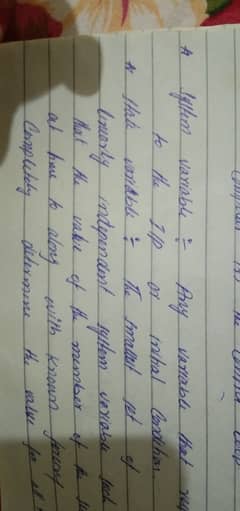 Complex
* System variable :- Any variable that
to the I/p or initial Condition.
* State variable :- The smallest set of
linearly independent system variable such
that the value of the members of the
at time to along with known forced
Completely determine the value for all